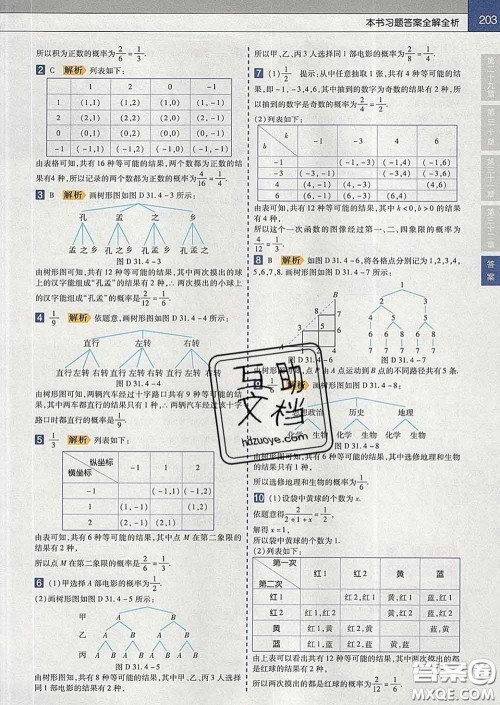 本书习题答案全解全析
203
所以积为正数的概率为2/6=1/3.
2 C 解析 列表如下:
1 2 0 -1
1 (1,1) (1,2) (1,0) (1,-1)
2 (2,1) (2,2) (2,0) (2,-1)
0 (0,1) (0,2) (0,0) (0,-1)
-1 (-1,1) (-1,2) (-1,0) (-1,-1)
由表格可知,共有16种等可能的结果,两个数都为正数的结
果有4种,所以记录的两个数都为正数的概率为4/16=1/4.
3 B 解析 画树形图如图D 31.4-3所示:
孔 孟 之 乡
孟 之 乡 孔 之 乡 孔 孟 乡 孔 孟 之
图 D 31.4-3
由树形图可知,共有12种等可能的结果,其中两次摸出的球
上的汉字能组成“孔孟”的结果有2种,所以两次摸出的小球上
的汉字能组成“孔孟”的概率为2/12=1/6.
4 1/9 解析 依题意,画树形图如图D 31.4-4所示:
直行 左转 右转
直行 左转 右转 直行 左转 右转 直行 左转 右转
图 D 31.4-4
∴两辆汽车经过该十字路口共有9种等可能的结果,
其中两车都直行的结果只有1种,∴两辆汽车经过该十字路
口时都直行的概率为1/9.
5 1/3 解析 列表如下:
纵坐标
横坐标
-1 1 2
-1 (-1,1) (-1,2)
1 (1,-1) (1,2)
2 (2,-1) (2,1)
由表可知,共有6种等可能的结果,其中点M在第二象限的
结果有2种,
所以点M在第二象限的概率为2/6=1/3.
6 (1)甲选择A部电影的概率为1/2.
(2)画树形图如图D 31.4-5所示:
甲 A B
乙 A B A B
丙 A B A B A B A B
图 D 31.4-5
由树形图可知,共有8种等可能的结果,甲、乙、丙3人选择
同1部电影的结果有2种,
所以甲、乙、丙3人选择同1部电影的概率为2/8=1/4.
7 (1)1/2 提示:从中任意抽取1张,共有4种等可能的结
果,即-1,-3,4,6,其中抽到的数字为奇数的结果有2种,所
以抽到的数字是奇数的概率为2/4=1/2.
(2)列表如下:
k
b
-1 -3 4 6
-1 (-3,-1) (4,-1) (6,-1)
-3 (-1,-3) (4,-3) (6,-3)
4 (-1,4) (-3,4) (6,4)
6 (-1,6) (-3,6) (4,6)
由表可知,共有12种等可能的结果,其中k<0,b>0的结果
有4种,
所以这个一次函数的图像经过第一、二、四象限的概率为
4/12=1/3.
8 B 解析 如图D 31.4-6,将各格点分别记为1,2,3,4,
5,6,7,8.画树形图如图D 31.4-7所示:
图 D 31.4-7
解析 画树形图如图
思想政治 历史 地理
化学 生物 化学 生物 化学 生物
图 D 31.4-8
由树形图可知,共有6种等可能的结果,其中选修地理和生物的
结果只有1种,
所以选修地理和生物的概率为1/6.
10 (1)设袋中黄球的个数为x.
依题意得2/(2+1+x)=1/2.
解得x=1,
所以袋中黄球的个数为1.
(2)列表如下:
第一次
第二次
红1 红2 黄 蓝
红1 红2,红1 黄,红1 蓝,红1
红2 红1,红2 黄,红2 蓝,红2
黄 红1,黄 红2,黄 蓝,黄
蓝 红1,蓝 红2,蓝 黄,蓝
由上表可以看出共有12种等可能的结果,
其中两次摸出的都是红球的结果有2种,
所以两次摸出的都是红球的概率为2/12=1/6.
答案
互助
文档
hdzuoye.com
答案圈
MXQE.COM